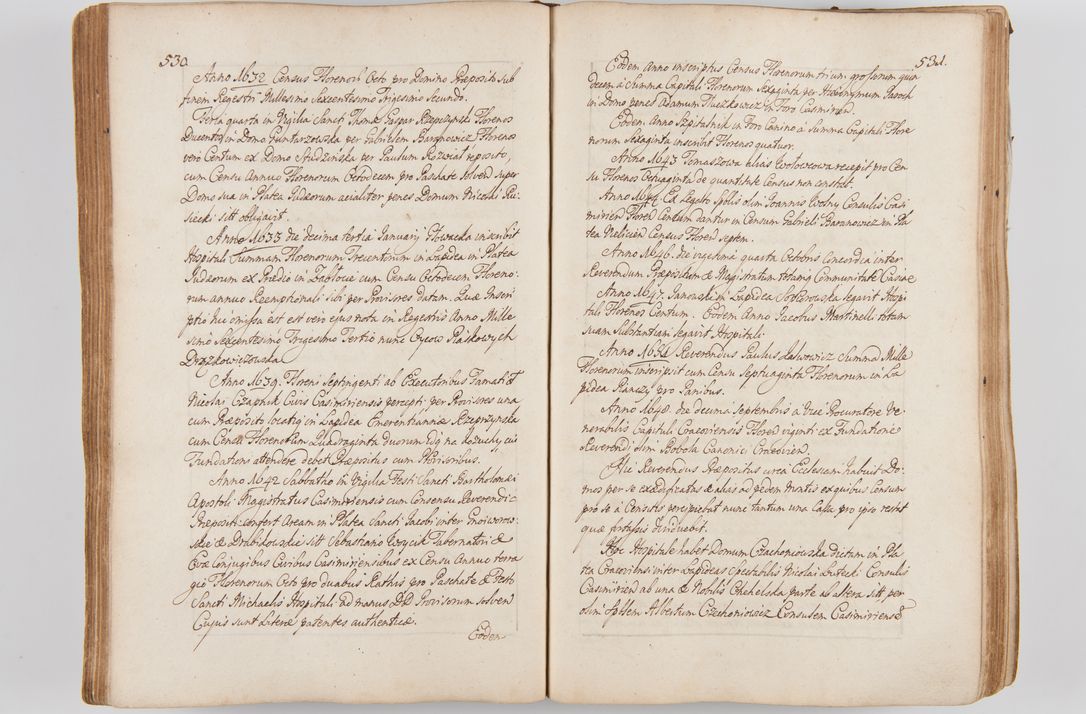 530.
Anno 1632 Census Florenos Octo pro Domino Præposito sub
finem Regestri Millesimo Sexcentesimo Trigesimo Secundo.
Feria quarta in Vigilia Sancti Thomæ Gaspar Rzepczynski Florenos
Ducentos in Domo per Gabrielem Baranowicz Florenos
vero Centum ex Domo Studzinska per Paulum reposito,
cum Censu Annuo Florenorum Octodecem pro Paschate solvend super
Domo sua in Platea Judæorum acialiter penes Domum Nicolai Ru
siecki sitt obligavit.
Anno 1633 die decima tertia January Głowacka inscribit
Hospitali Summam Florenorum Trecentorum in Lapidea in Platea
Judæorum ex Prædio in cum Censu Octodecem Floreno
rum annuo Reemptionali sibi per Provisores datam. Quæ Inscri
ptio hic omissa est est vero ejus nota in Regestris Anno Mille
simo Sexcentesimo Trigesimo Tertio nunc Oycow Piaskowych
Drązkowiczowska
Anno 1639. Floreni Septingenti ab Executoribus Famati
Nicolai Czapnik Civis Casimiriensis percepti per Provisores una
cum Præposito locati in Lapidea Emerentianna Rzepczynska
cum Censu Florenorum Quadraginta duorum idq na kożuchy, cui
Fundationi attendere debet Præpositus cum Provisoribus.
Anno 1642 Sabbatho in Vigilia Festi Sancti Bartholomæi
Apostoli Magistratus Casimiriensis cum Consensu Reverendi
Præpositi confert Aream in Platea Sancti Jacobi inter
skie & Drabikowskie sitt Sebastiano Tabernatori &
Evæ Conjugibus Civibus Casimiriensibus ex Censu Annuo terra
gio Florenorum Octo pro duabus Rathis pro Paschate & Festo
Sancti Michaelis Hospitali ad manus DD Provisorum solvend
Cujus sunt Literæ patentes authenticæ.
Eodem
531.
Eodem Anno inscriptus Census Florenorum trium grossorum quin
decem a Summa Capitali Florenorum Sexaginta per Hieronymum
in Domo penes Adamum in Foro Casimirien.
Eodem Anno Szpitalnik in Foro Canino a Summa Capitali Flore
norum Sexaginta inscribit Florenos quatuor.
Anno 1643 Tomaszowa alias Wołowcowa recepit pro Cen
su Florenos Octuaginta de quantitate Census non constat.
Anno 1644 Ex Legato Spllis olim Joannis Wolny Consulis Casi
mirien Floren Centum dantur in Censum Gabrieli Baranowicz in Pla
tea Census Floren septem.
Anno 1646. die vigesima quarta Octobris Concordia inter
Reverendum Præpositum & Magistratum totamq Communitate Casiæ
Anno 1647 Janowski in Lapidea legavit Hospi
tali Florenos Centum. Eodem Anno Jacobus Martinelli totam
suam Substantiam legavit Hospitali
Anno 1651 Reverendus Paulus Laswowicz Summa Mille
Florenorum inscripsit cum Censu Septuaginta Florenorum in La
pidea pro Panibus.
Anno 1648. die decima Septembris a Vice Procuratore Ve
nerabilis Capituli Cracoviensis Floren viginti ex Fundatione
Reverendi olim Bobola Canonici Cracovien.
Hic Reverendus Præpositus circa Ecclesiam habuit Do
mos per se exædificatas & alias ad pedem montis ex quibus Censum
pro se a Censitis percipiebat nunc tantum una Casa pro ipso restat
quæ
Hoc Hospitale habet Domum Czechoniowska dictam in Pla
tea Cracoviensi inter Lapideas Spectabilis Nicolai Consulis
Casimirien ab una & Nobilis Chehelska parte ab altera sitt per
olim Spllem Albertum Czechoniowicz Consulem Casimiriens